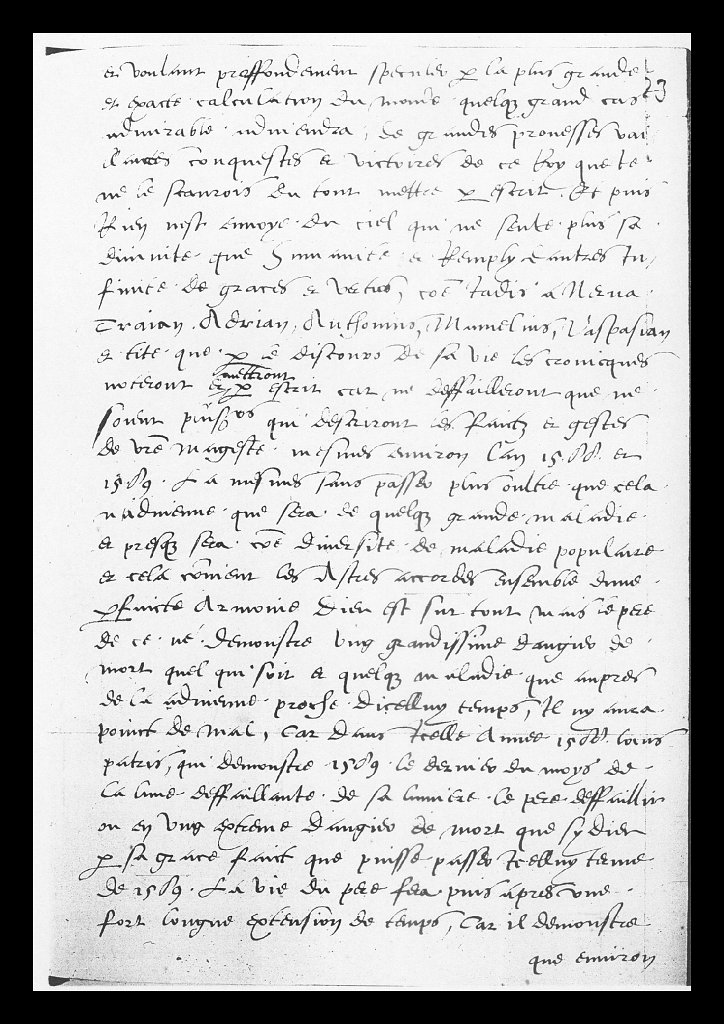 et voulant proffondement speculer p la plus grande
23
et exacte calculation du monde quelq grand cas
admirable adviendra, de grandes prouesses vai
conquestes et victoires de ce Roy que Je
ne le scaurois du tout mettre p escrit. Et puis
Rien nest envoye du ciel qui ne sente plus sa
divinite que humanité et Remply dautres In,
finité de graces et vertus, coe Jadis a Nerva
Traian, Adrian, Anthonins, Vaspasian
et tite que p le discours de sa vie les cronicques
noteront et mettront p escrit car ne deffailleront que ne
soient plusrs qui descriront les faictz et gestes
de vre mageste mesmes environ lan 1588 et
1589. La mesmes sans passer plus oultre que cela
nadvienne que sera de quelq grande maladie
et presq sera coe diversite de maladie populaire
et cela convient les Astres accordes ensemble dune
pfaicte Armonie Dieu est sur tout mais le pere
de ce né demonstre ung grandissime dangier de
mort quel qui soit et quelque maladie que aupres
de la advienne proche dicelluy temps, Il ny aura
poinct de mal, Car dans Icelle Annee 1588 louis
patris, qui demonstre 1589 le dernier du moys de
la lune deffaillante de sa lumiere le pere deffaillir
ou en ung extreme dangier de mort que sy dieu
p sa grace faict que puisse passer Icelluy terme
de 1589. La vie du pere fera puis apres une
fort longue extension de temps, Car il demonstre
que environ